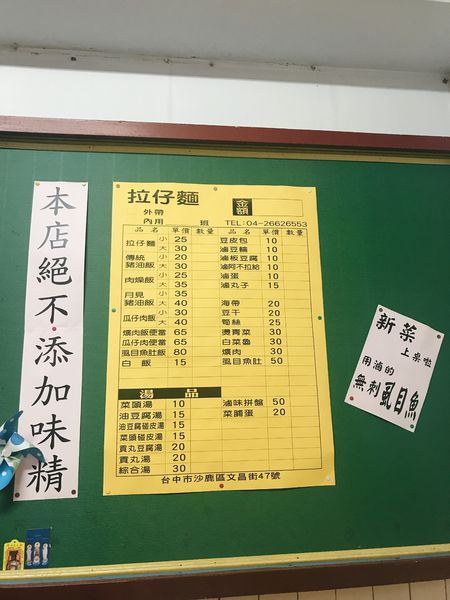 本店絕不添加味精
拉仔麵
金額
外帶
內用 班 TEL:04-26626553
品名 單價 數量 品名 單價 數量
拉仔麵 小 25 豆皮包 10
大 30 滷豆輪 10
傳統豬油飯 小 20 滷板豆腐 10
大 30 滷阿不拉給 10
肉燥飯 小 25 滷蛋 10
大 35 滷丸子 15
月見豬油飯 小 35
大 40 海帶 20
瓜仔肉飯 小 30 豆干 20
大 40 筍絲 25
爌肉飯便當 65 燙青菜 30
瓜仔肉便當 65 白菜魯 30
虱目魚肚飯 80 爌肉 30
白飯 15 虱目魚肚 50
湯品
菜頭湯 10 滷味拼盤 50
油豆腐湯 15 菜脯蛋 20
油豆腐碰皮湯 15
菜頭碰皮湯 15
貢丸豆腐湯 20
貢丸湯 20
綜合湯 30
台中市沙鹿區文昌街47號
新菜
上桌啦
用滷的
無刺虱目魚